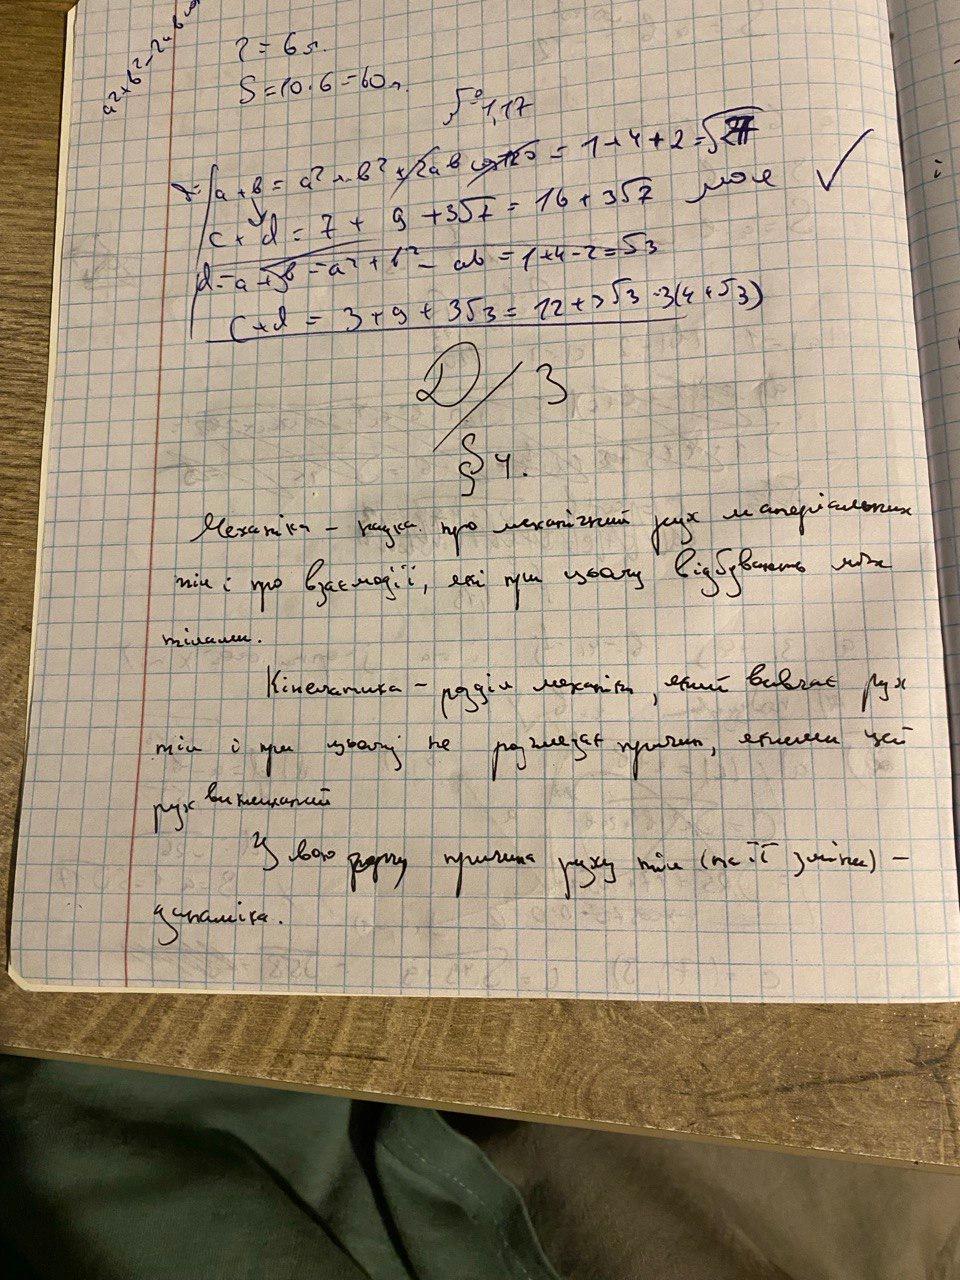 a²+b²-2ab
r = 6 л.
S = 10·6 = 60 л.
√° 1,17
a + b = a² + b² + 2ab = 1+4+2 = √7
c + d = 7 + 9 + 3√7 = 16 + 3√7 моє ✓
d = a + b = a² + b² - ab = 1+4-2 = √3
c + d = 3 + 9 + 3√3 = 12 + 3√3 = 3(4+√3)
Д/З
§ 4.
Механіка – наука про механічний рух матеріальних
тіл і про взаємодії, які при цьому відбувають між
тілами.
Кінематика – розділ механіки, який вивчає рух
тіл і при цьому не розглядає причин, якими цей
рух викликаний
У свою чергу причина руху тіл (та її зміни) –
динаміка.